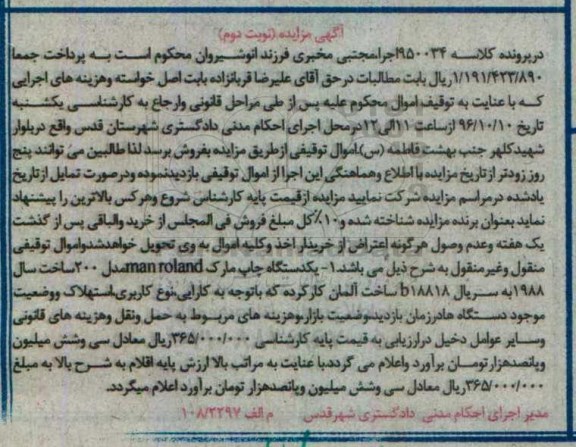 آگهی مزایده (نوبت دوم)
درپرونده کلاسه ۹۵۰۰۳۴اجرامجتبی مخبری فرزند انوشیروان محکوم است به پرداخت جمعا
۱/۱۹۱/۴۲۳/۸۹۰ریال بابت مطالبات درحق آقای علیرضا قربانزاده بابت اصل خواسته وهزینه های اجرایی
که با عنایت به توقیف اموال محکوم علیه پس از طی مراحل قانونی وارجاع به کارشناسی یکشنبه
تاریخ ۹۶/۱۰/۱۰ ازساعت ۱۱الی۱۲درمحل اجرای احکام مدنی دادگستری شهرستان قدس واقع دربلوار
شهیدکلهر جنب بهشت فاطمه (س).اموال توقیفی ازطریق مزایده بفروش برسد لذا طالبین می توانند پنج
روز زودتر ازتاریخ مزایده با اطلاع وهماهنگی این اجرا از اموال توقیفی بازدیدنموده ودرصورت تمایل ازتاریخ
یادشده درمراسم مزایده شرکت نمایید مزایده ازقیمت پایه کارشناس شروع وهرکس بالاترین را پیشنهاد
نماید بعنوان برنده مزایده شناخته شده و۱۰٪کل مبلغ فروش فی المجلس از خرید والباقی پس از گذشت
یک هفته وعدم وصول هرگونه اعتراض از خریدار اخذ وکلیه اموال به وی تحویل خواهدشدواموال توقیفی
منقول وغیرمنقول به شرح ذیل می باشد.۱- یکدستگاه چاپ مارک man rolandمدل ۲۰۰ساخت سال
۱۹۸۸به سریال b۱۸۸۱۸ ساخت آلمان کارکرده که باتوجه به کارایی،نوع کاربری،استهلاک ووضعیت
موجود دستگاه هادرزمان بازدید،وضعیت بازار،وهزینه های مربوط به حمل ونقل وهزینه های قانونی
وسایر عوامل دخیل درارزیابی به قیمت پایه کارشناسی ۳۶۵/۰۰۰/۰۰۰ریال معادل سی وشش میلیون
وپانصدهزارتومان برآورد واعلام می گردد.با عنایت به مراتب بالا ارزش پایه اقلام به شرح بالا به مبلغ
۳۶۵/۰۰۰/۰۰۰ریال معادل سی وشش میلیون وپانصدهزار تومان برآورد اعلام میگردد.
مدیر اجرای احکام مدنی دادگستری شهرقدس م الف ۱۰۸/۲۲۹۷